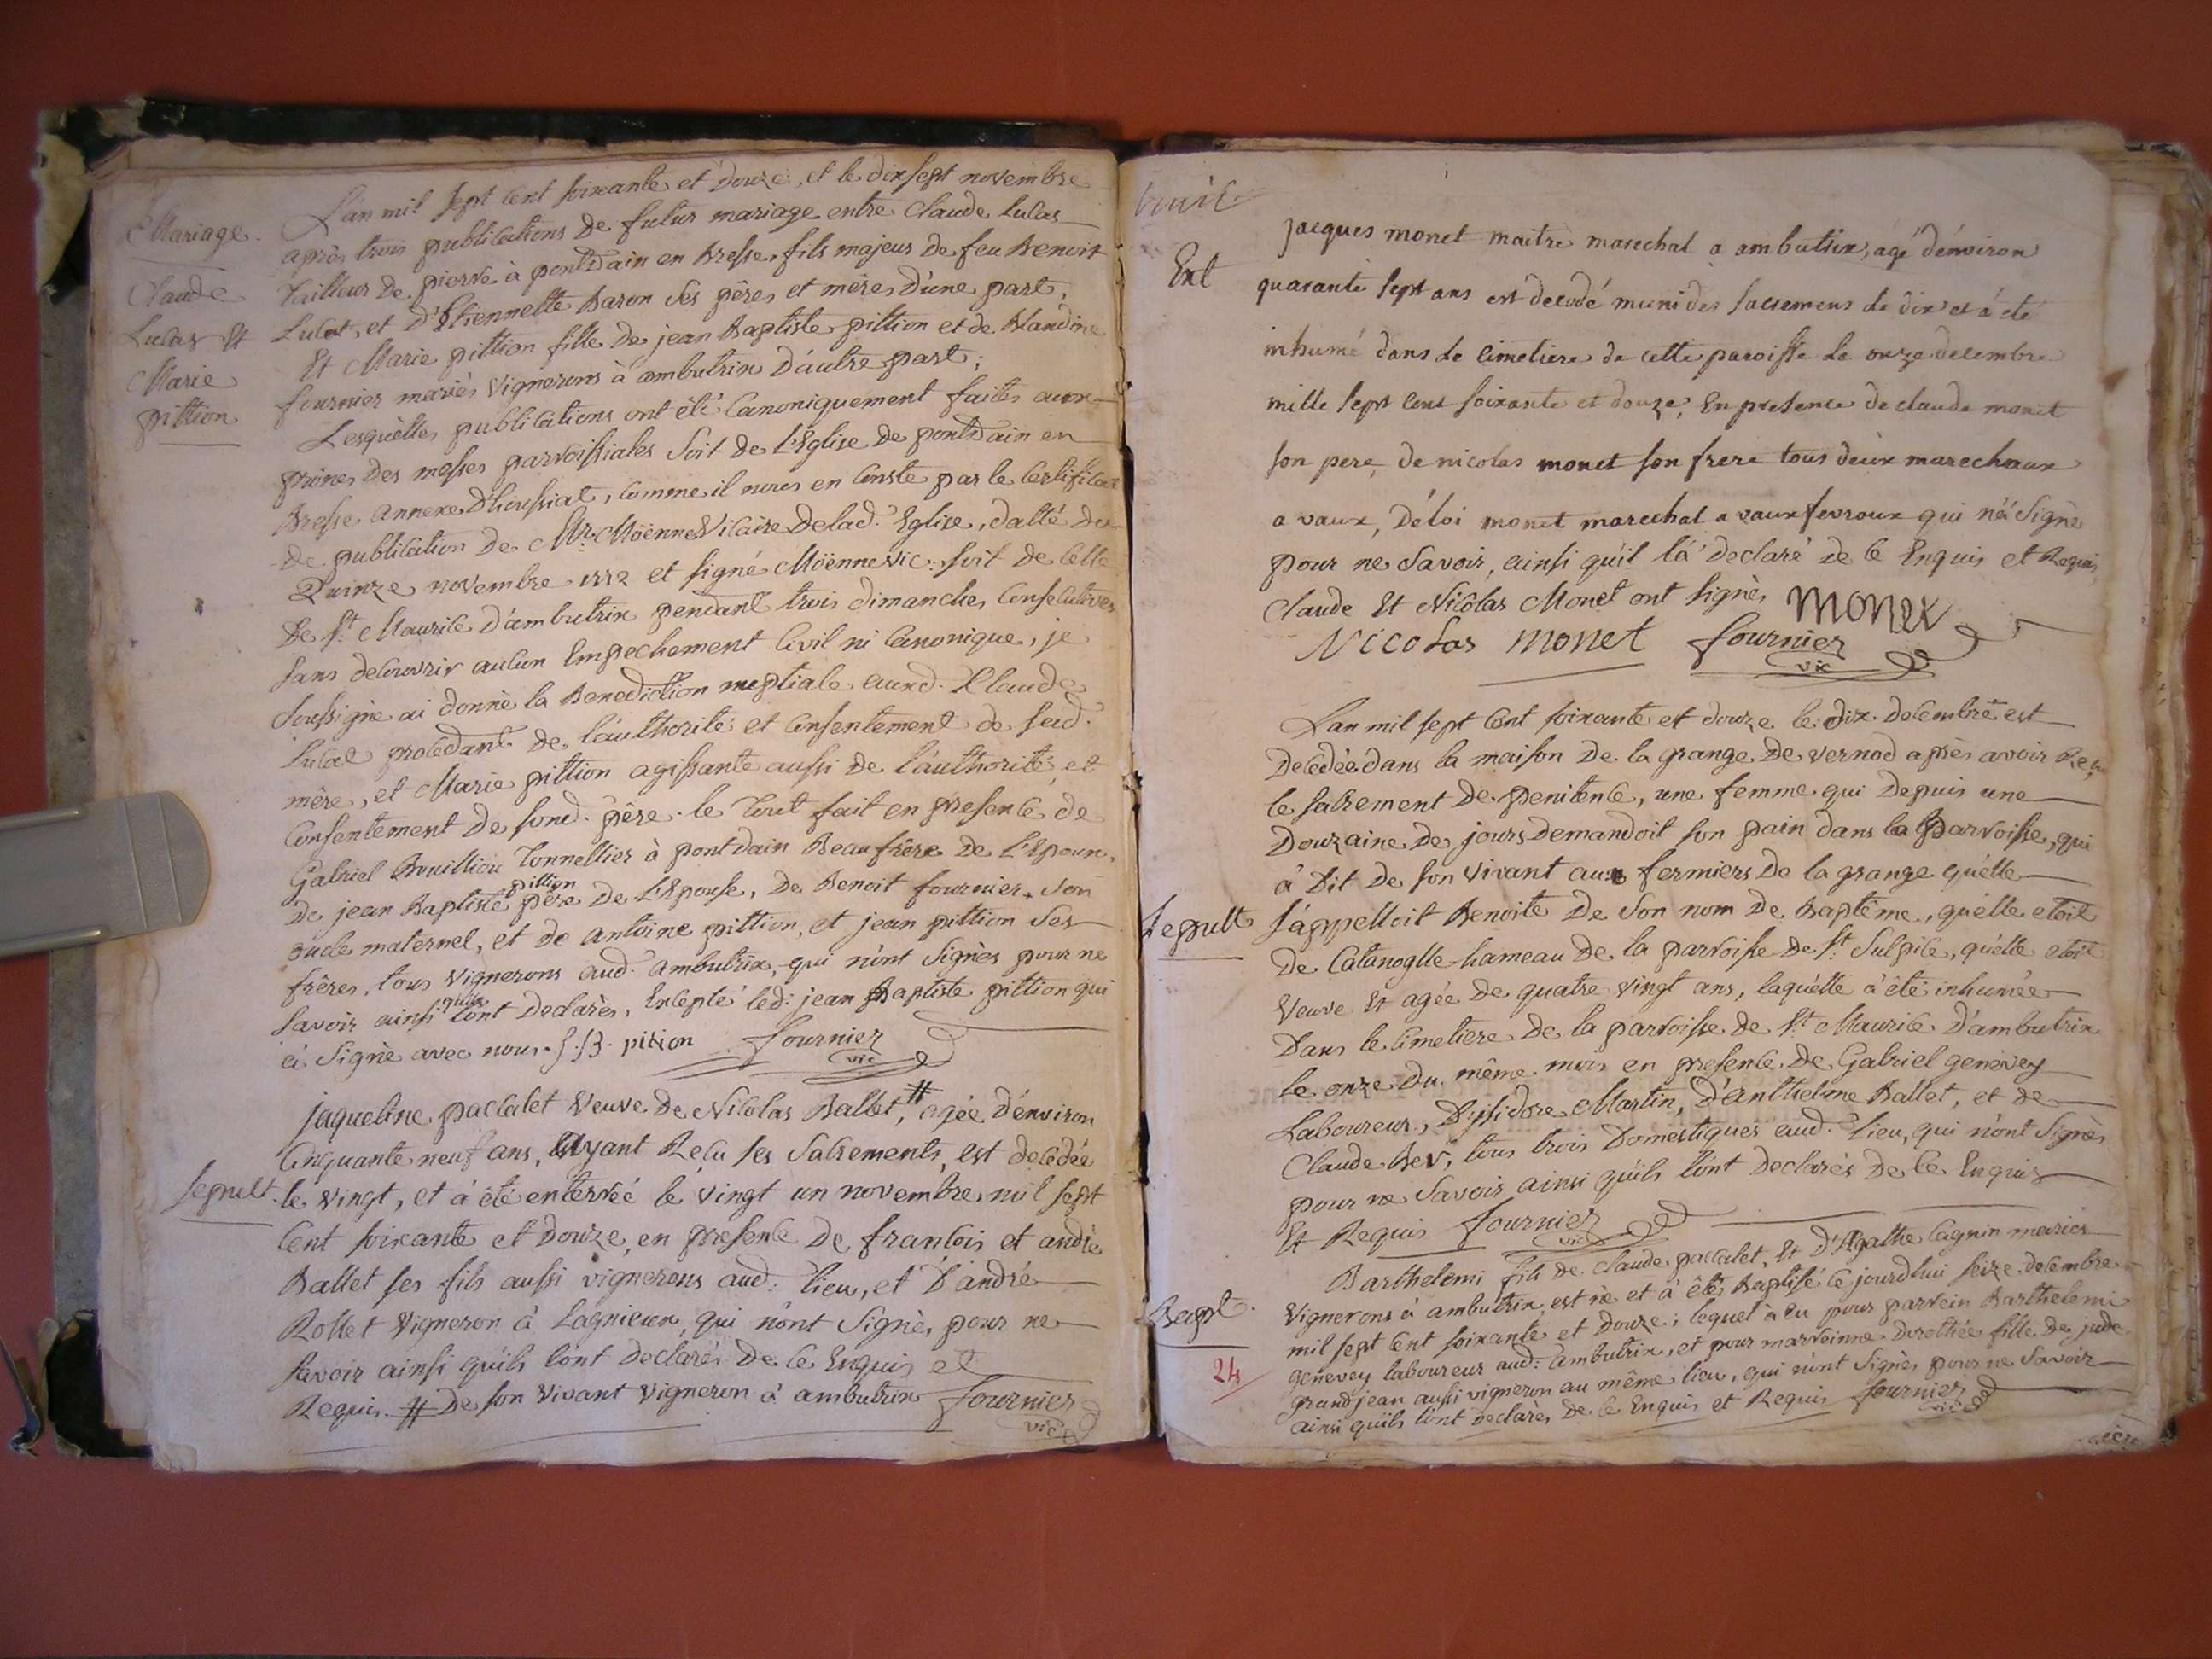 Mariage.
Claude
Lucas Et
Marie
pittion
L'an mil sept cent soixante et Douze, et le dix sept novembre
après trois publications De futur mariage entre Claude Lucas
Tailleur De pierre à pontDain en Bresse, fils majeur de feu Benoit
Lucat, et D'Etiennette Baron Ses pères et mères D'une part,
Et Marie pittion fille De jean Baptiste pittion et de Blandine
fournier mariés Vignerons à ambutrix D'autre part;
Lesquelles publications ont été Canoniquement faites aux
prônes Des messes parroissiales Soit De l'Eglise De pontDain en
Bresse annexe D'houssiat, comme il nous en Conste par le Certificat
De publication De Mr. Möenne Vicaire Delad. Eglise, datté Du
Quinze novembre 1772 et signé Möenne vic: soit de Celle
De St. Maurice D'ambutrix pendant trois Dimanches Consecutives
Sans decouvrir aucun Empechement Civil ni Canonique, je
Soussigné ai donné la Benediction nuptiale auxd. Claude
Lucat procedant de l'authorité et Consentement de sad.
mère, et Marie pittion agissante aussi de l'authorité et
Consentement De sond. père. le Tout fait en presence de
Gabriel Bouilliou Tonnellier à pontdain Beaufrère De L'Epoux,
De jean Baptiste pittion père De L'Epouse, De Benoit fournier Son
oncle maternel, et de antoine pittion, et jean pittion Ses
frères, tous Vignerons aud. ambutrix, qui n'ont Signés pour ne
Savoir ainsi qu'ils l'ont Declarés, Excepté led: jean Baptiste pittion qui
à Signé avec nous. J. B. pition fournier
vic
Sepult.
jaqueline paccalet Veuve De Nicolas Ballet, # agée D'environ
Cinquante neuf ans, Ayant Reçu ses Sacrements, est decédée
le vingt, et à été enterréé le vingt un novembre mil sept
Cent soixante et Douze, en presence De francois et andré
Ballet ses fils aussi vignerons aud: lieu, et D'andré
Rollet Vigneron à Lagnieux, qui n'ont Signés pour ne
Savoir ainsi qu'ils l'ont Declarés De Ce Enquis et
Requis. # De son Vivant Vigneron à ambutrix fournier
vic
Ext
jacques monet maitre marechal a ambutrix, agé d'environ
quarante sept ans est decedé muni des sacremens le dix et à eté
inhumé dans le cimetiere de cette paroisse le onze decembre
mille sept cens soixante et douze, En presence de claude monet
son pere, de nicolas monet son frere tous deux marechaux
a vaux, D'éloi monet marechal a vaux fevroux qui n'a Signé
pour ne Savoir, ainsi qu'il l'a declaré de Ce Enquis et Requis
Claude Et Nicôlas Monet ont Signés Monex
Nicolas monet fournier
vic
Sepult
L'an mil sept Cent soixante et douze le Dix Decembre est
Decédée dans la maison De la grange De vernod après avoir Reçu
le sacrement De penitence, une femme qui Depuis une
Douzaine De jours Demandoit son pain dans la Parroisse, qui
à Dit De son Vivant aux fermiers De la grange quelle
s'appelloit Benoite De Son nom De Baptême, quelle etoit
De Catanoglle hameau De la parroise De St. Sulpice, quelle etoit
Veuve Et agée De quatre Vingt ans, laquelle à été inhumée
Dans le Cimetiere De la parroisse De St. Maurice D'ambutrix
le onze Du même mois en presence De Gabriel genevey
Laboureur, D'issidore Martin, D'Anthelme Ballet, et de
Claude Rev, tous trois Domestiques aud. lieu, qui n'ont Signés
pour ne Savoir ainsi qu'ils l'ont Declarés De Ce Enquis
Et Requis fournier
vic
Bapt.
24
Barthelemi fils De Claude paccalet, Et D'Agathe Cagnin mariés
Vignerons à ambutrix, est né et à été Baptisé Ce jourdhui seize decembre
mil sept Cent soixante et Douze; lequel à eu pour parrein Barthelemi
genevey laboureur aud. ambutrix, et pour marreinne Dorothée fille De jude
grandjean aussi vigneron au même lieu, qui n'ont Signés pour ne Savoir
ainsi qu'ils l'ont declarés De Ce Enquis et Requis fournier
vic